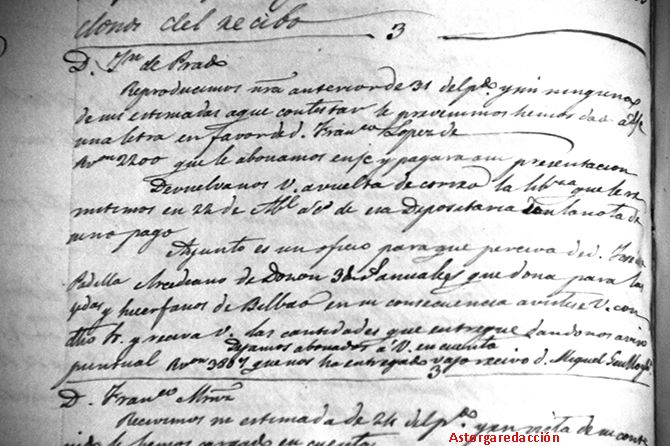 donos del recibo
3
D. Jn de Prado
Reproducimos nra anterior de 31 del pdo y sin ninguna
de sus estimadas a que contestar le prevenimos hemos dado
una letra en favor de d. Franco Lopez de
Rvon 2200 que le abonamos en y pagara a su presentacion
Devuelvanos V. a vuelta de correo la libza que le re
mitimos en 22 de Abl de esa Depositaria con la nota de
su no pago
Adjunto es un oficio para que perciva de d.
Padilla Arcediano de anuales que dona para las
vdas y huerfanos de Bilbao en su consecuencia avistese V. con
dho Sr. y reciva V. las cantidades que entregue dandonos aviso
puntual Dejamos abonados a V. en cuenta
Rvon que nos ha entregado vajo recivo d. Miguel
3
D. Franco
Recivimos su estimada de 24 del pdo y en vista de su conte
nido le hemos cargado en cuenta
Astorgaredacción